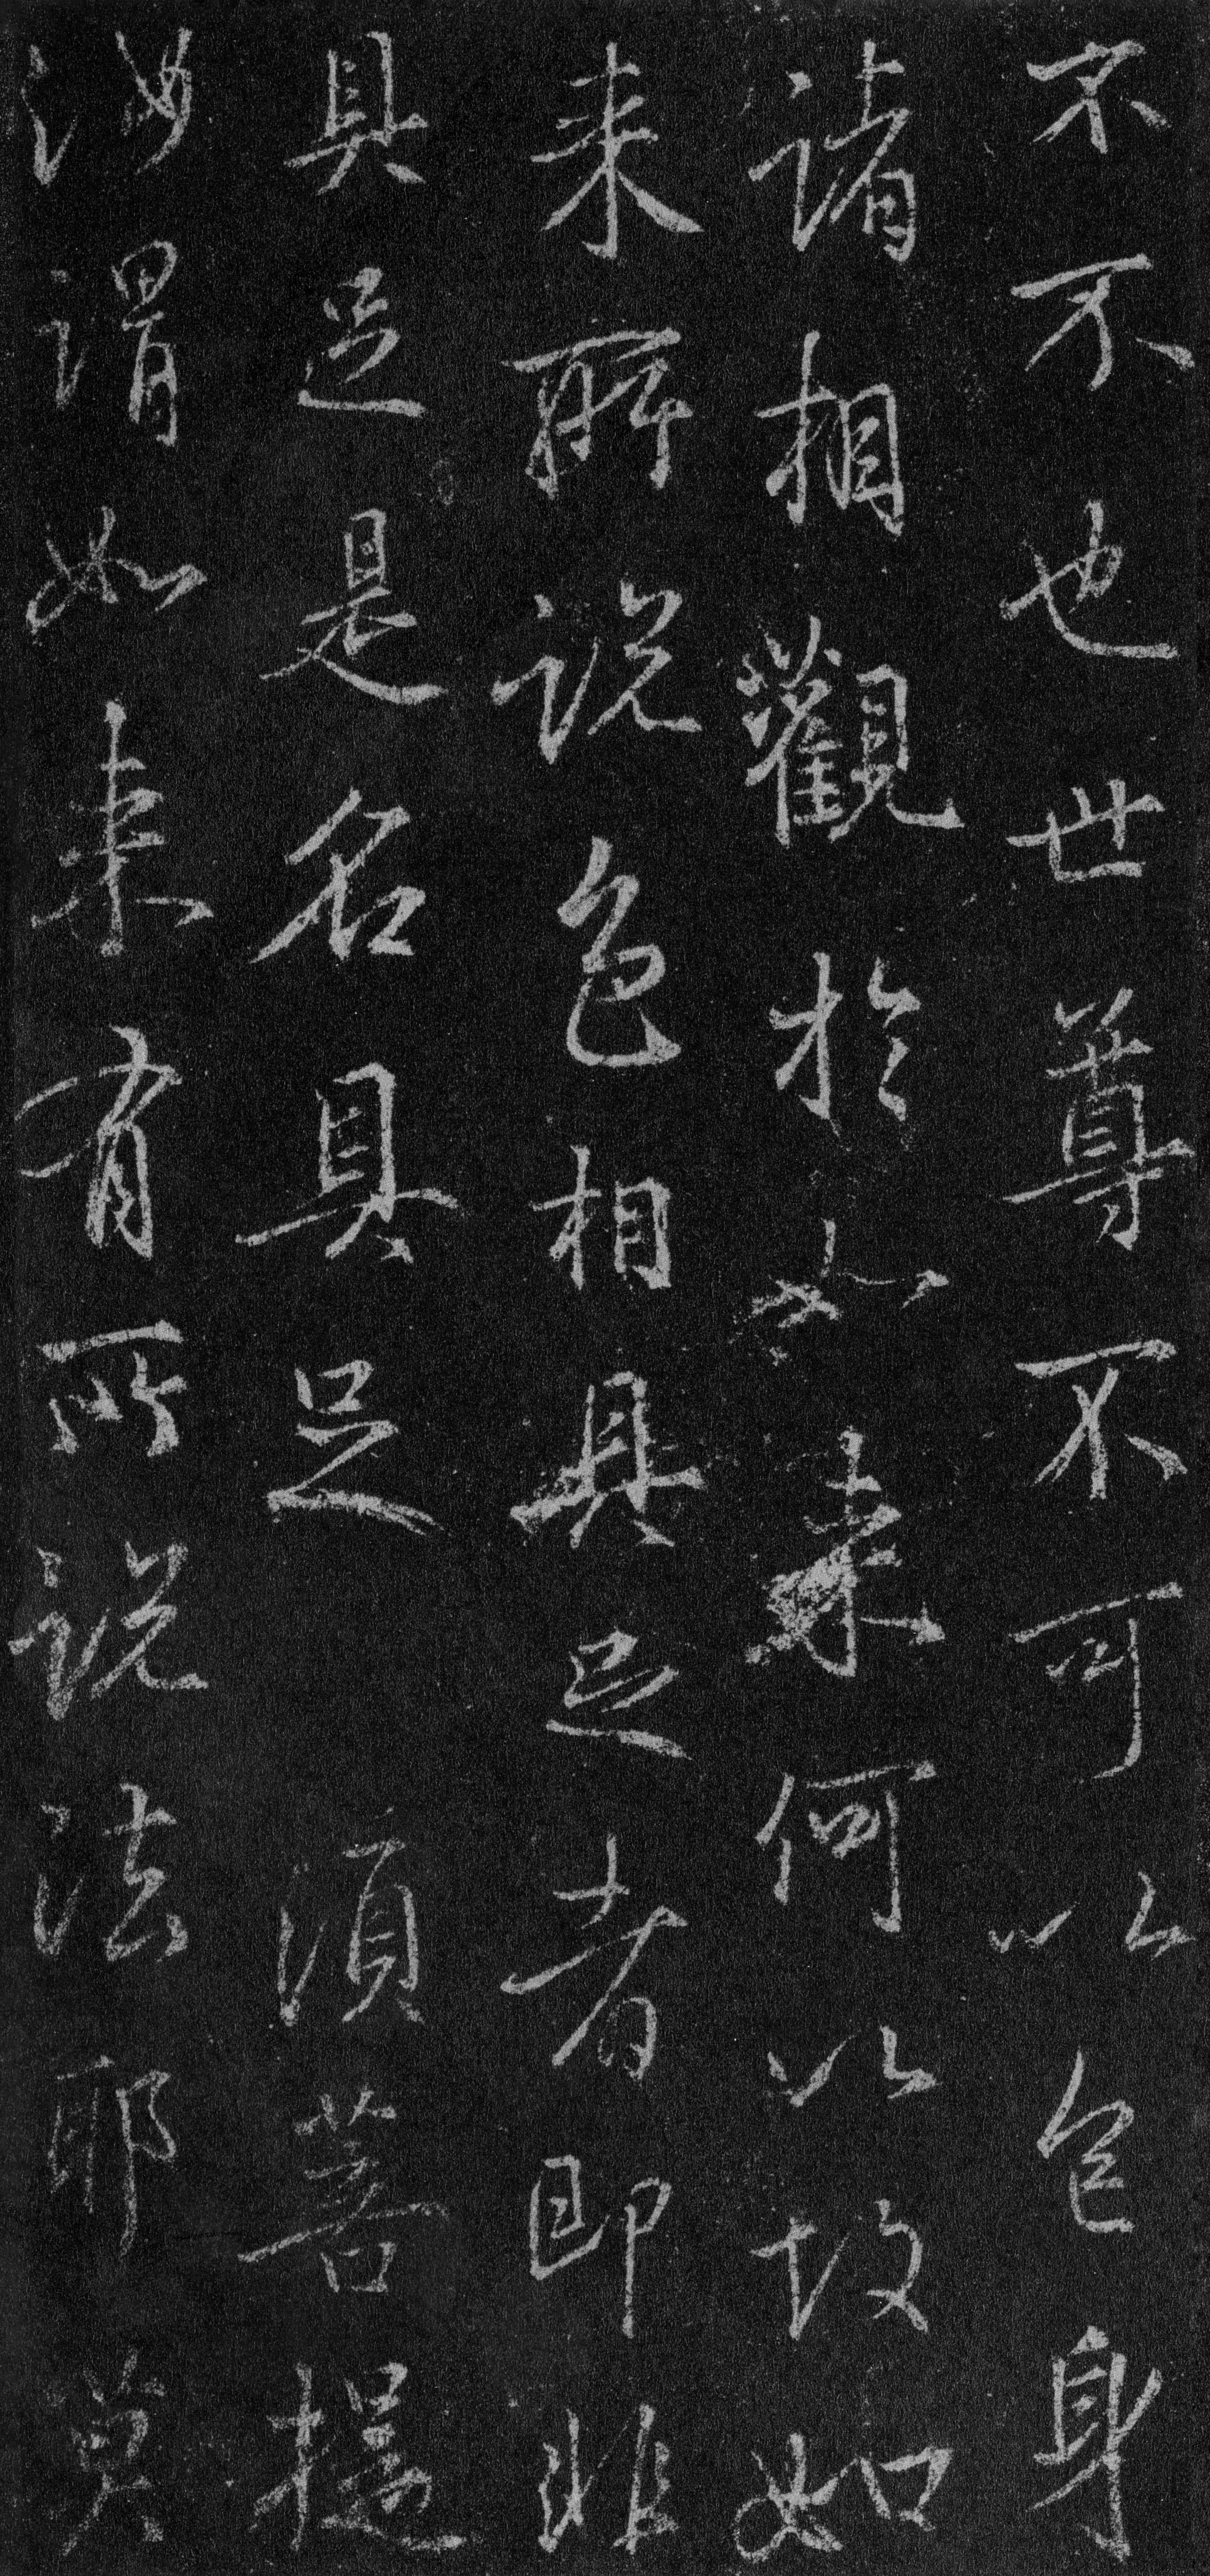 不不也世尊不可以色身
諸相觀於如來何以故如
来所説色相具足者即非
具足是名具足 須菩提
汝謂如來有所説法耶莫